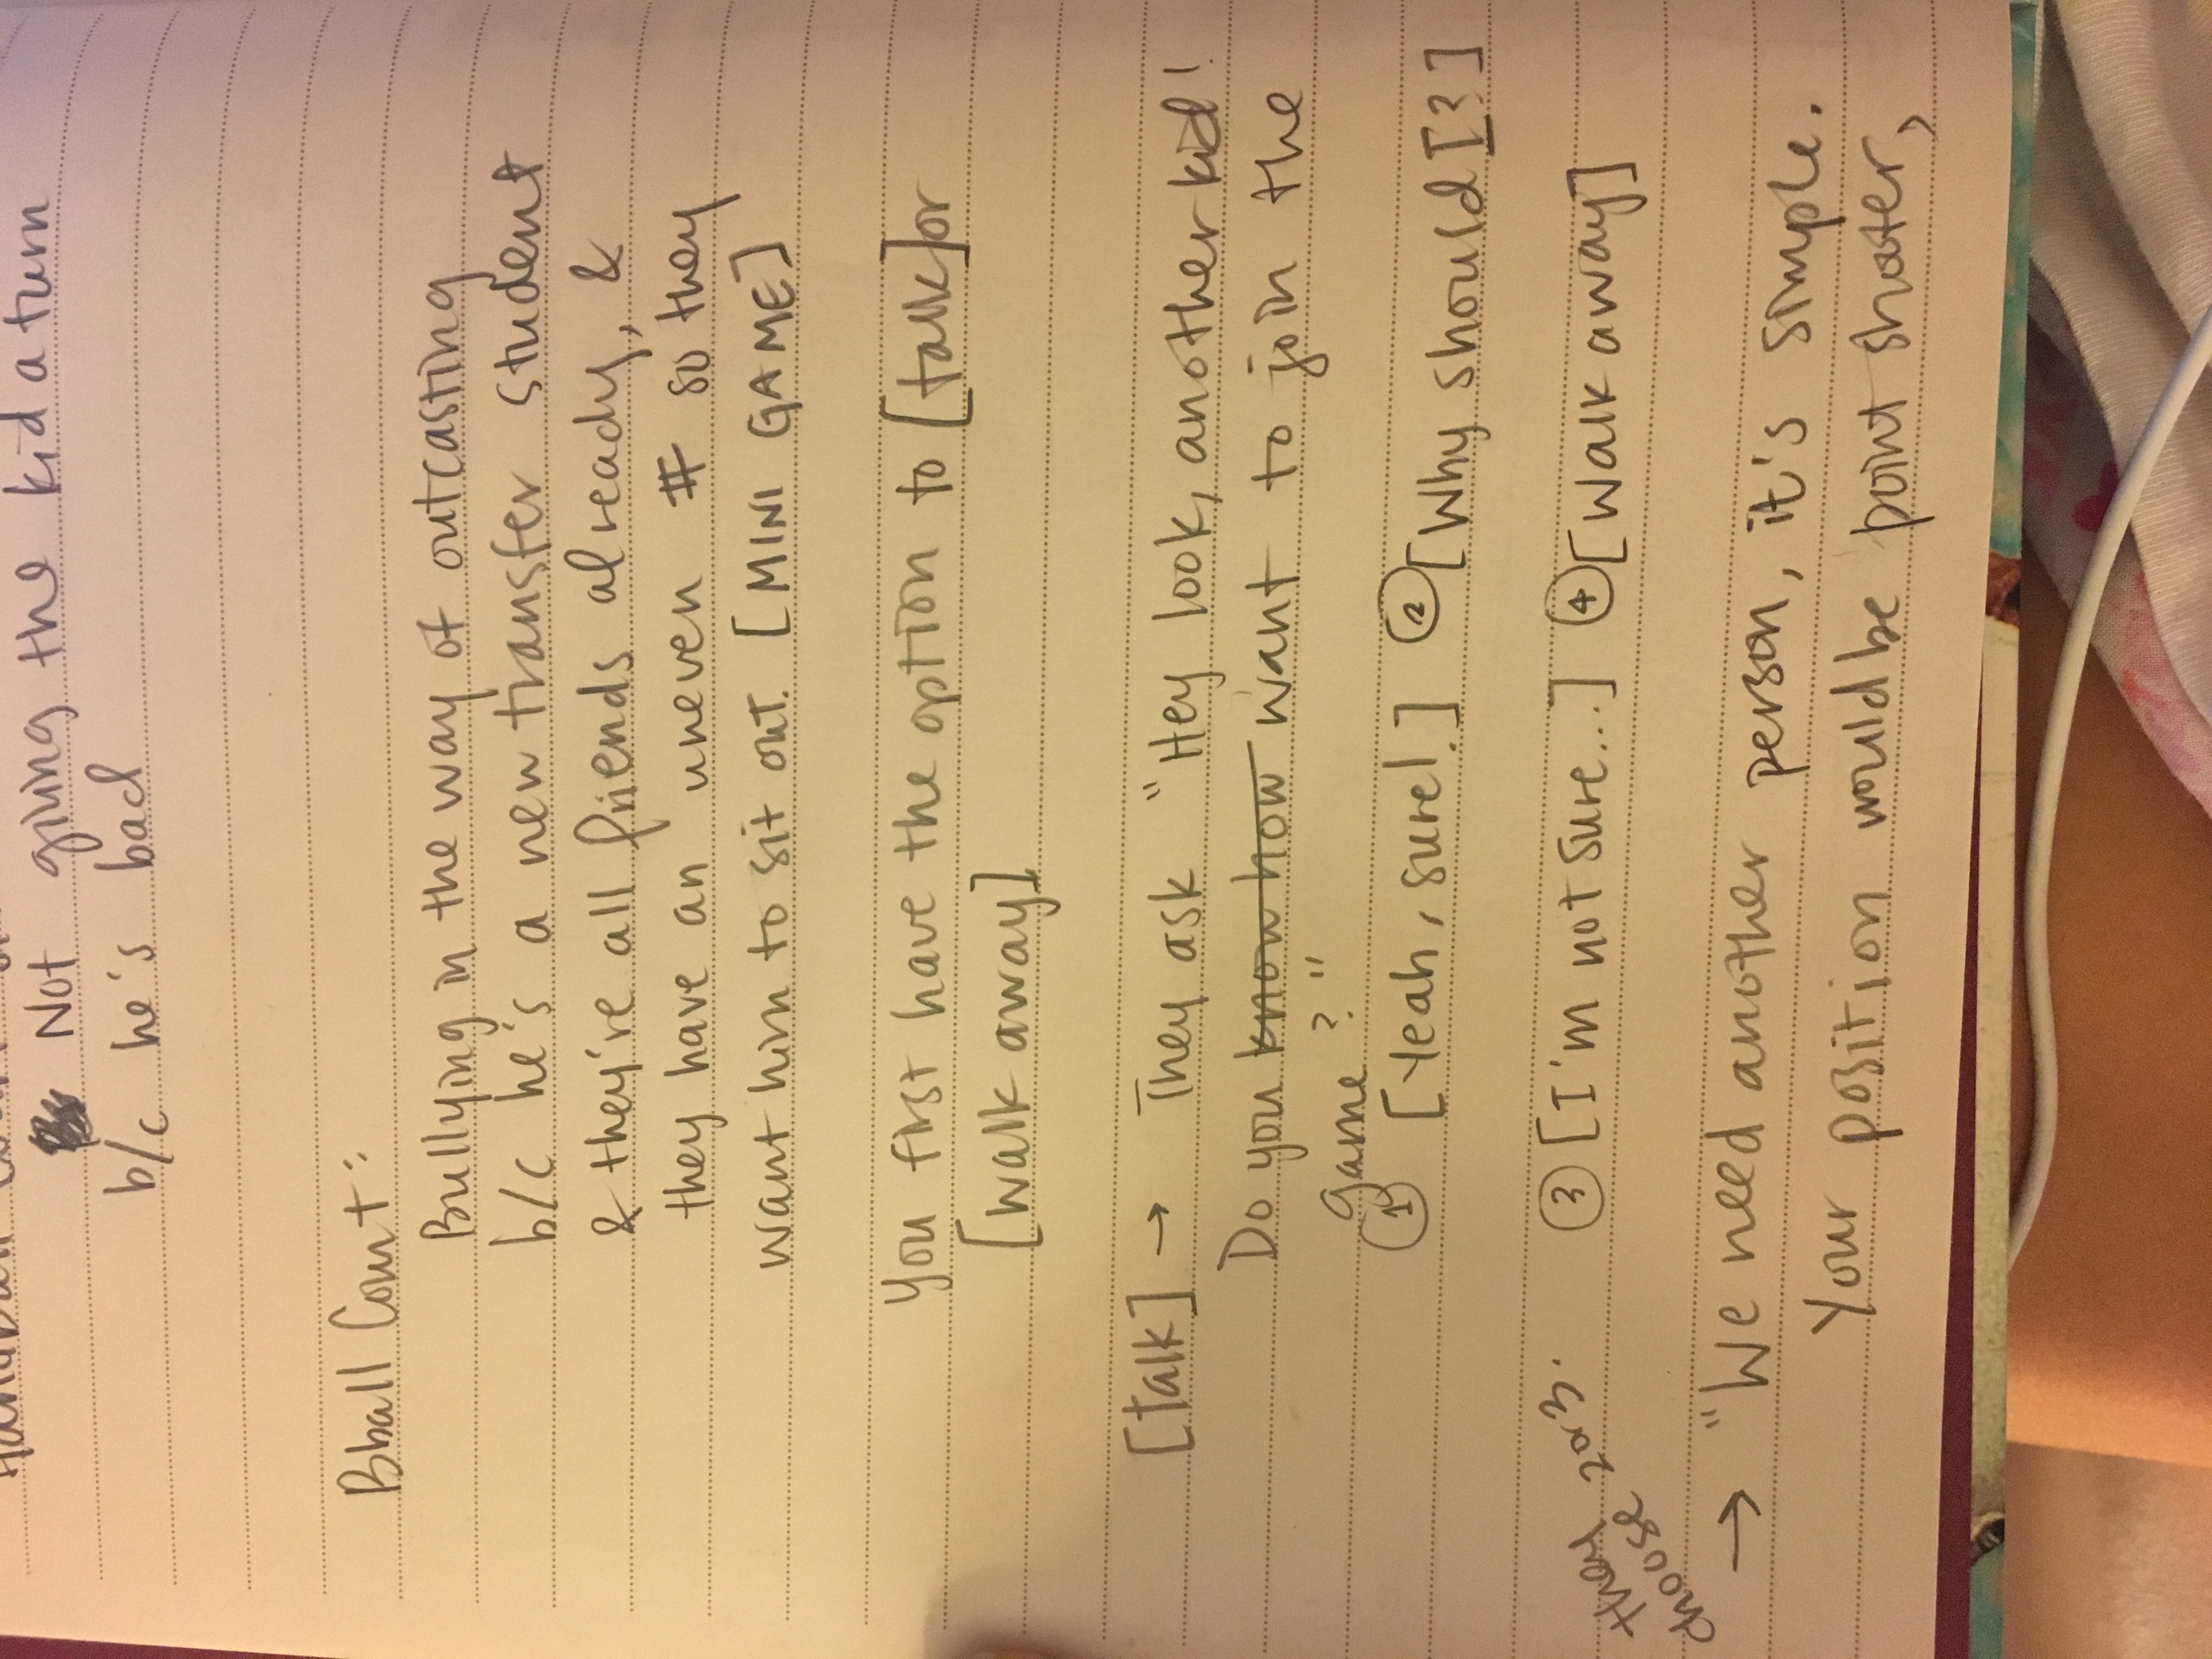 Handball Court
Not giving the kid a turn
b/c he's bad
Bball Court:
Bullying in the way of outcasting
b/c he's a new transfer student
& they're all friends already, &
they have an uneven # so they
want him to sit out. [MINI GAME]
You first have the option to [talk] or
[walk away]
[talk] → They ask "Hey look, another kid!
Do you know how want to join the
game?"
① [Yeah, sure!] ② [Why should I?]
③ [I'm not sure...] ④ [Walk away]
they
choose 2 or 3.
→ "We need another person, it's simple.
Your position would be point shooter,